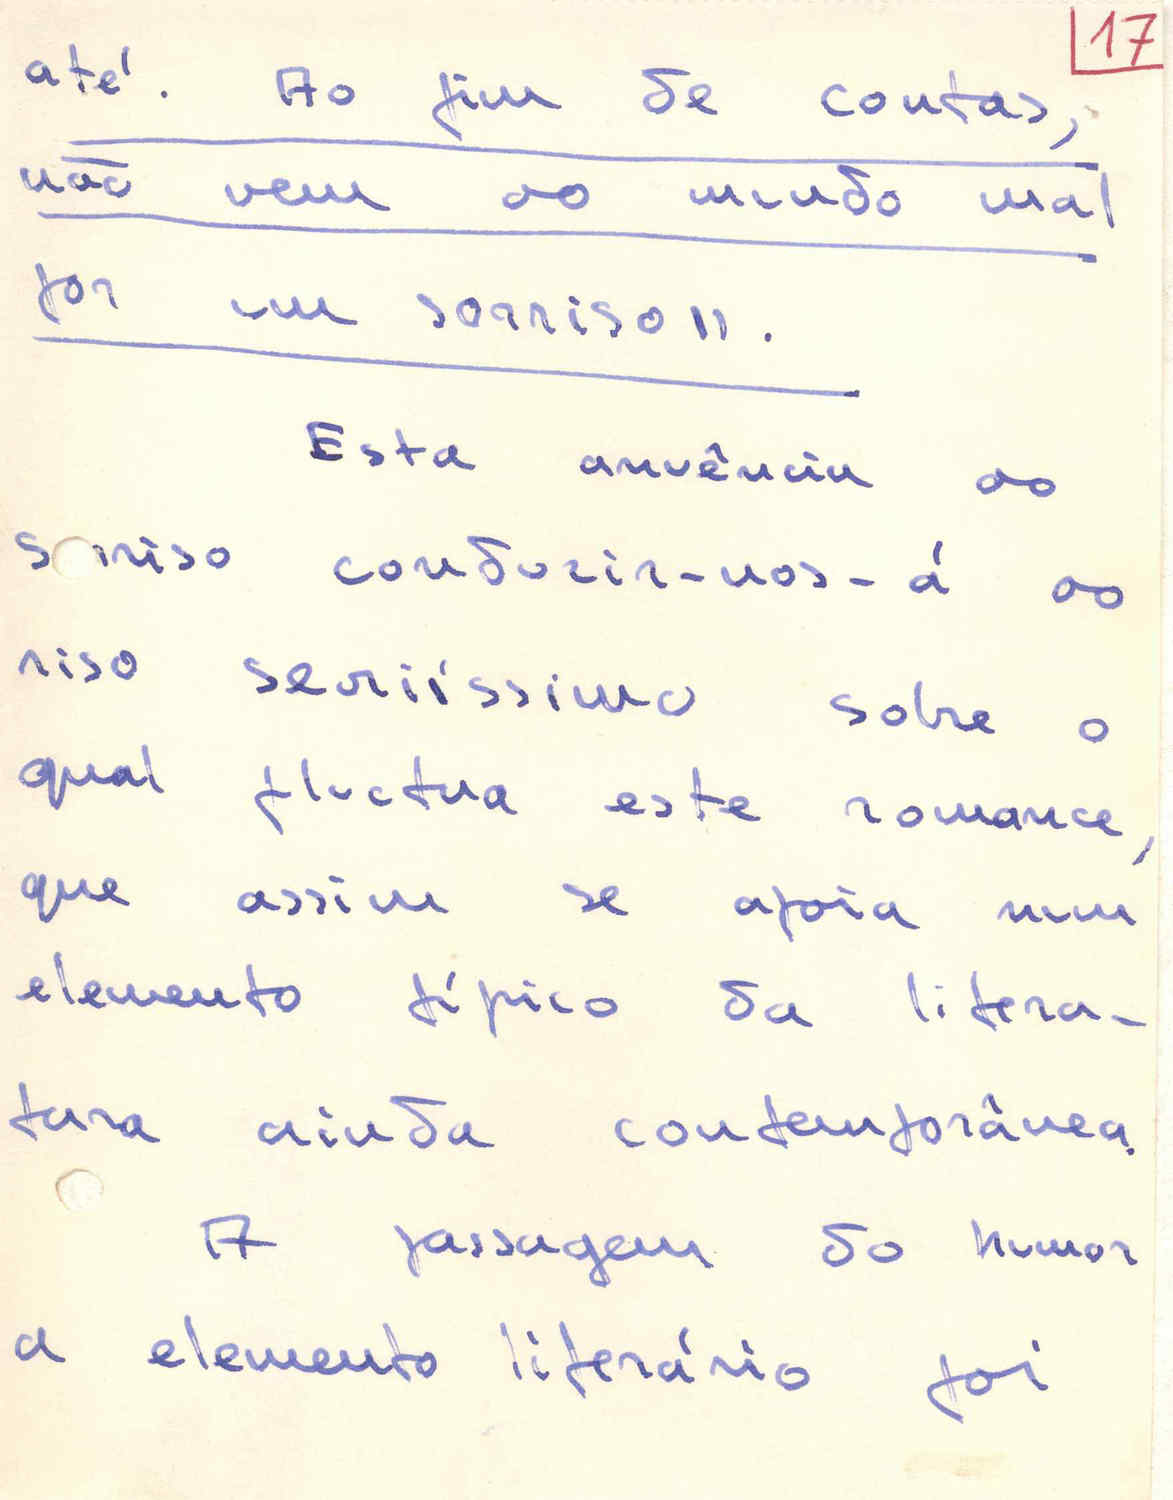 17
até. Ao fim de contas,
não vem ao mundo mal
por um sorriso".
Esta anuência ao
sorriso conduzir-nos-á ao
riso seriíssimo sobre o
qual fluctua este romance,
que assim se apoia num
elemento típico da litera-
tura ainda contemporânea.
A passagem do humor
a elemento literário foi